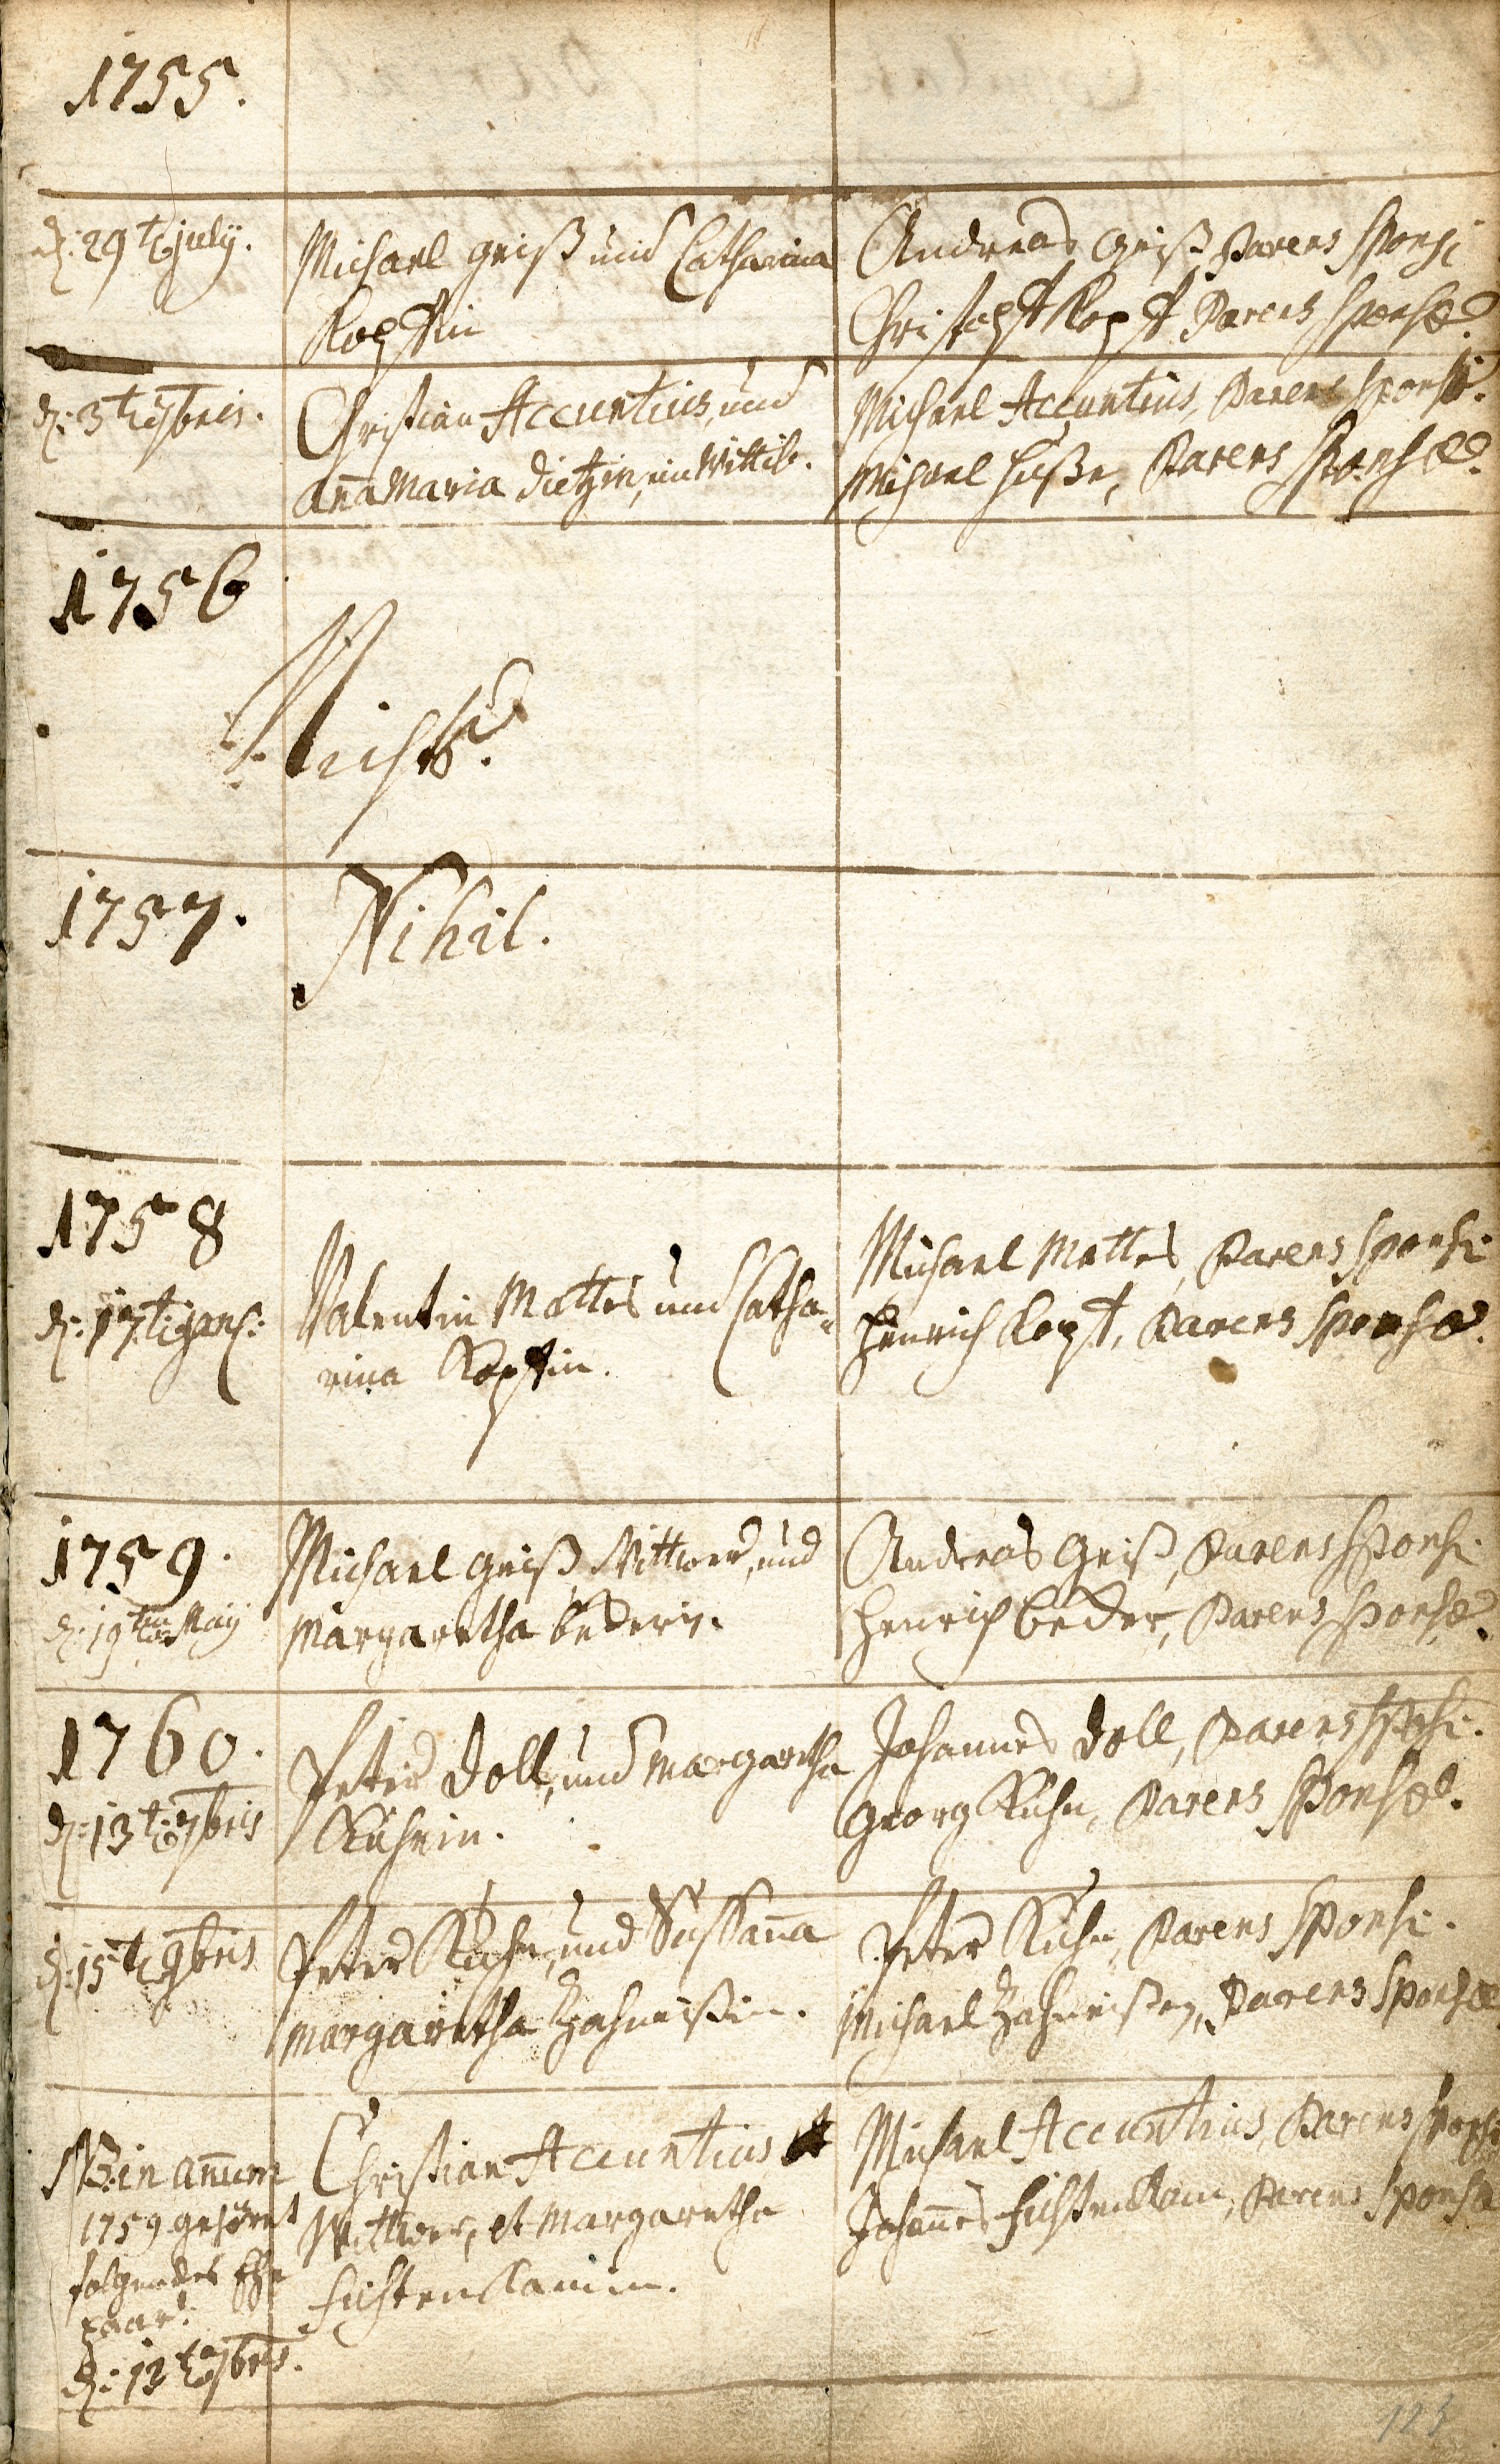 1755.
d. 29t. july.
Michael Geiß und Catharina
Kopffin
Andreas Geiß Parens Sponsi
Christoph Kopff Parens Sponsæ.
d. 3t. 7bris.
Christian Accuntius, und
Anna Maria Dietzin, ein Wittib.
Michael Accuntius, Parens Sponsi.
Michael, Parens Sponsæ.
1756
Nichts.
1757.
Nihil.
1758
d. 17t.
Valentin Mattes und Catha-
rina Kopffin.
Michael Mattes, Parens Sponsi.
Henrich Kopff, Parens Sponsæ.
1759.
d. 19ten Maij
Michael Geiß, Wittwer, und
Margaretha Bederin.
Andreas Geiß, Parens Sponsi.
Henrich Beder, Parens Sponsæ.
1760.
d. 13t. 7bris
Peter Doll, und Margaretha
Kuhnin.
Johannes Doll, Parens Spsi.
Georg Kuhn, Parens Sponsæ.
d. 15t. 9bris
Peter Kuhn, und Susanna
Margaretha Zahneißin.
Peter Kuhn, Parens Sponsi.
Michael Zahneißen, Parens Sponsæ
NB. in annum
1759 gehöret
folgendes Ehe
paar:
d. 12t. 7bris.
Christian Accuntius
Wittwer, et Margaretha
Fichtenkamin.
Michael Accuntius, Parens Sponsi
Johannes Fichtenkam, Parens Sponsæ
123